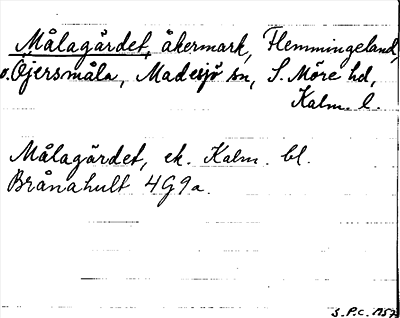 Målagärdet, åkermark, Flemmingeland,
v. Öjersmåla, Madesjö sn, S. Möre hd,
Kalm. l.
Målagärdet, ek. Kalm. bl.
Brånahult 4G9a.
S.P.C. 1957